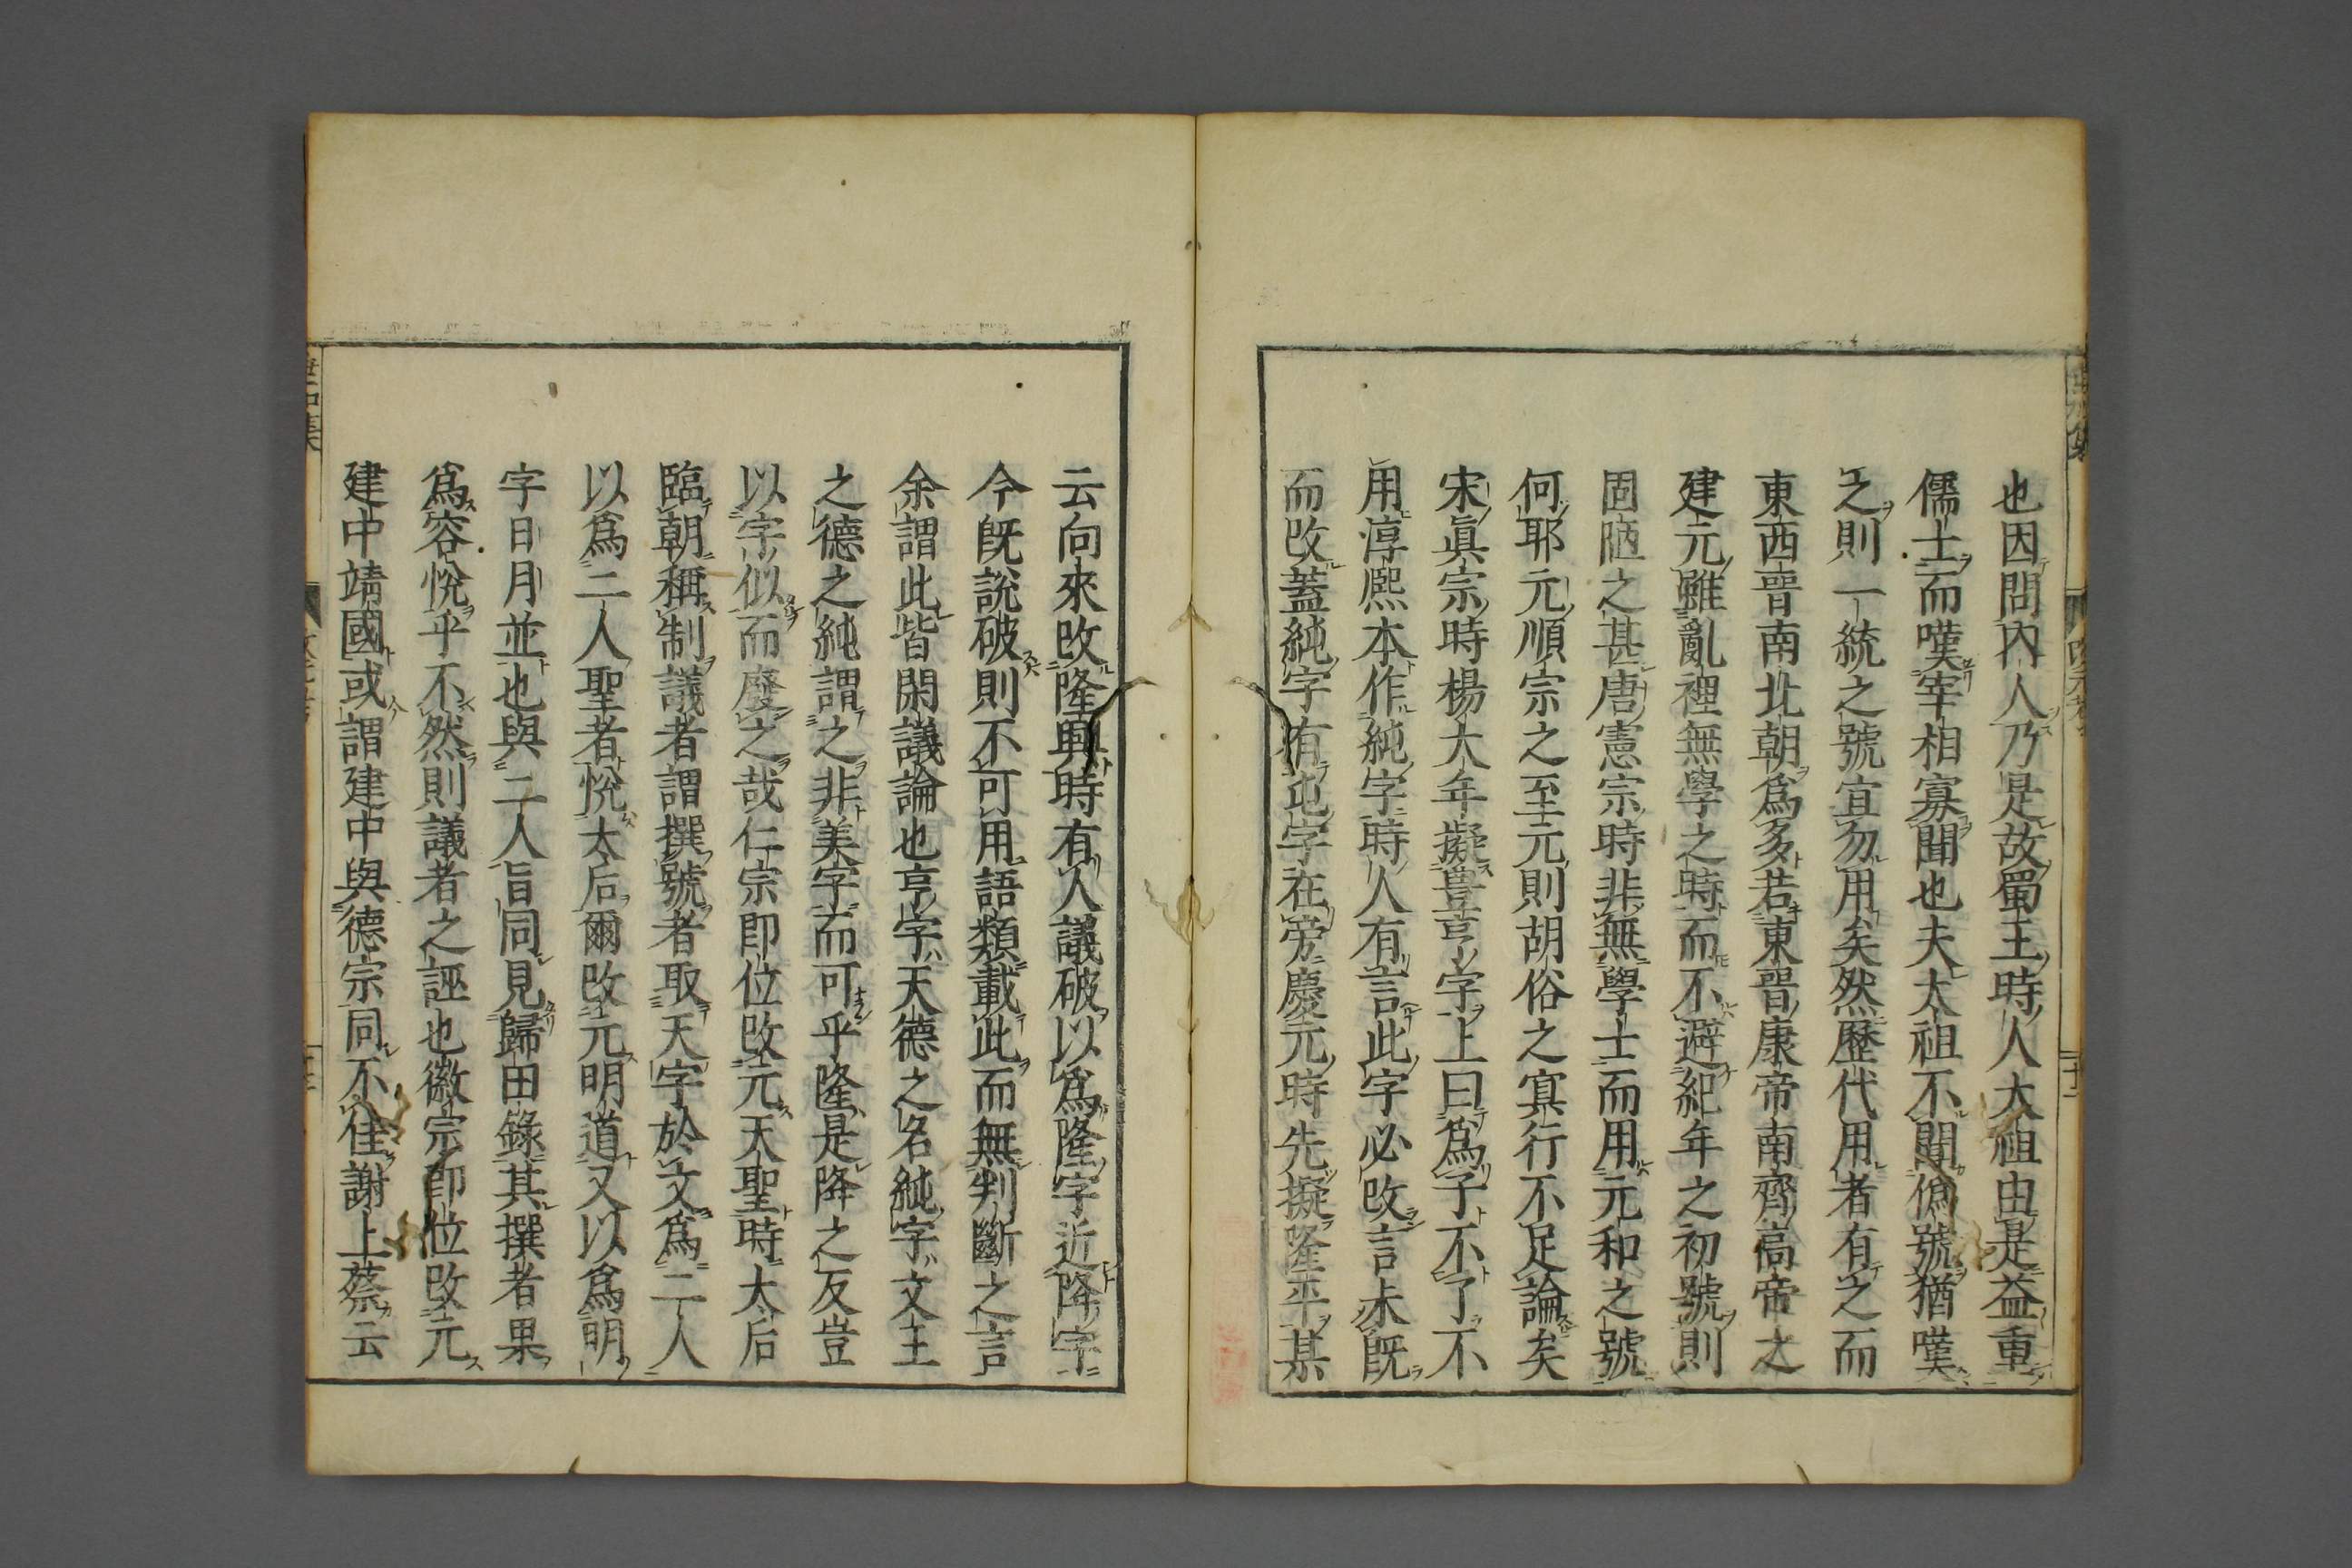 也因問内人乃是故蜀王時人大祖由是益重
儒士而嘆宰相寡聞也夫太祖不聞僞號猶嘆
之則一統之號宜勿用矣然歷代用者有之而
東西晉南北朝爲多若東晉康帝南齊高帝之
建元雖亂裡無學之時而不避紀年之初號則
固陋之甚唐憲宗時非無學士而用元和之號
何耶元順宗之至元則胡俗之寘行不足論矣
宋眞宗時楊大年擬豊亨字上曰爲子不了不
用淳熙本作純字時人有言此字必改言未既
而改蓋純字有屯字在旁慶元時先擬隆平某
云向來改隆興時有人議破以爲隆字近降字
今旣說破則不可用語類載此而無判斷之言
余謂此皆閑議論也亨字天德之名純字文王
之德之純謂之非美字而可乎隆是降之反豈
以字似而廢之哉仁宗即位改元天聖時太后
臨朝稱制議者謂撰號者取天字於文爲二人
以爲二人聖者悅太后爾改元明道又以爲明
字日月並也與二人旨同見歸田錄其撰者果
爲容悅乎不然則議者之誣也徽宗即位改元
建中靖國或謂建中與德宗同不佳謝上蔡云